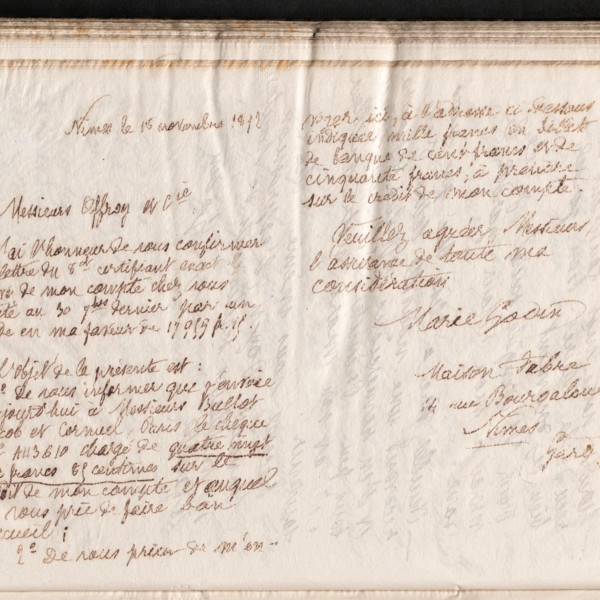 Nimes le 18 novembre 1872
Messieurs Offroy et Cie
J'ai l'honneur de vous confirmer
lettre du 8 ct certifiant exact le
de mon compte chez vous
au 30 7bre dernier par un
de en ma faveur de 17959 fr.
L'objet de la présente est :
1o de vous informer que j'envoie
aujourd'hui à Messieurs Ballot
et Cornuel Paris le chèque
No 443610 chargé de quatre vingt
francs 85 centimes sur le
de mon compte et auquel
vous prie de faire bon
accueil ;
2o De vous prier de m'en-
voyer ici, à l'adresse ci dessous
indiquée mille francs en billets
de banque de cent francs et de
cinquante francs, à prendre
sur le crédit de mon compte.
Veuillez agréer, Messieurs,
l'assurance de toute ma
considération
Marie Godin
Maison Fabre
14 rue Bourdaloue
Nimes
Gard